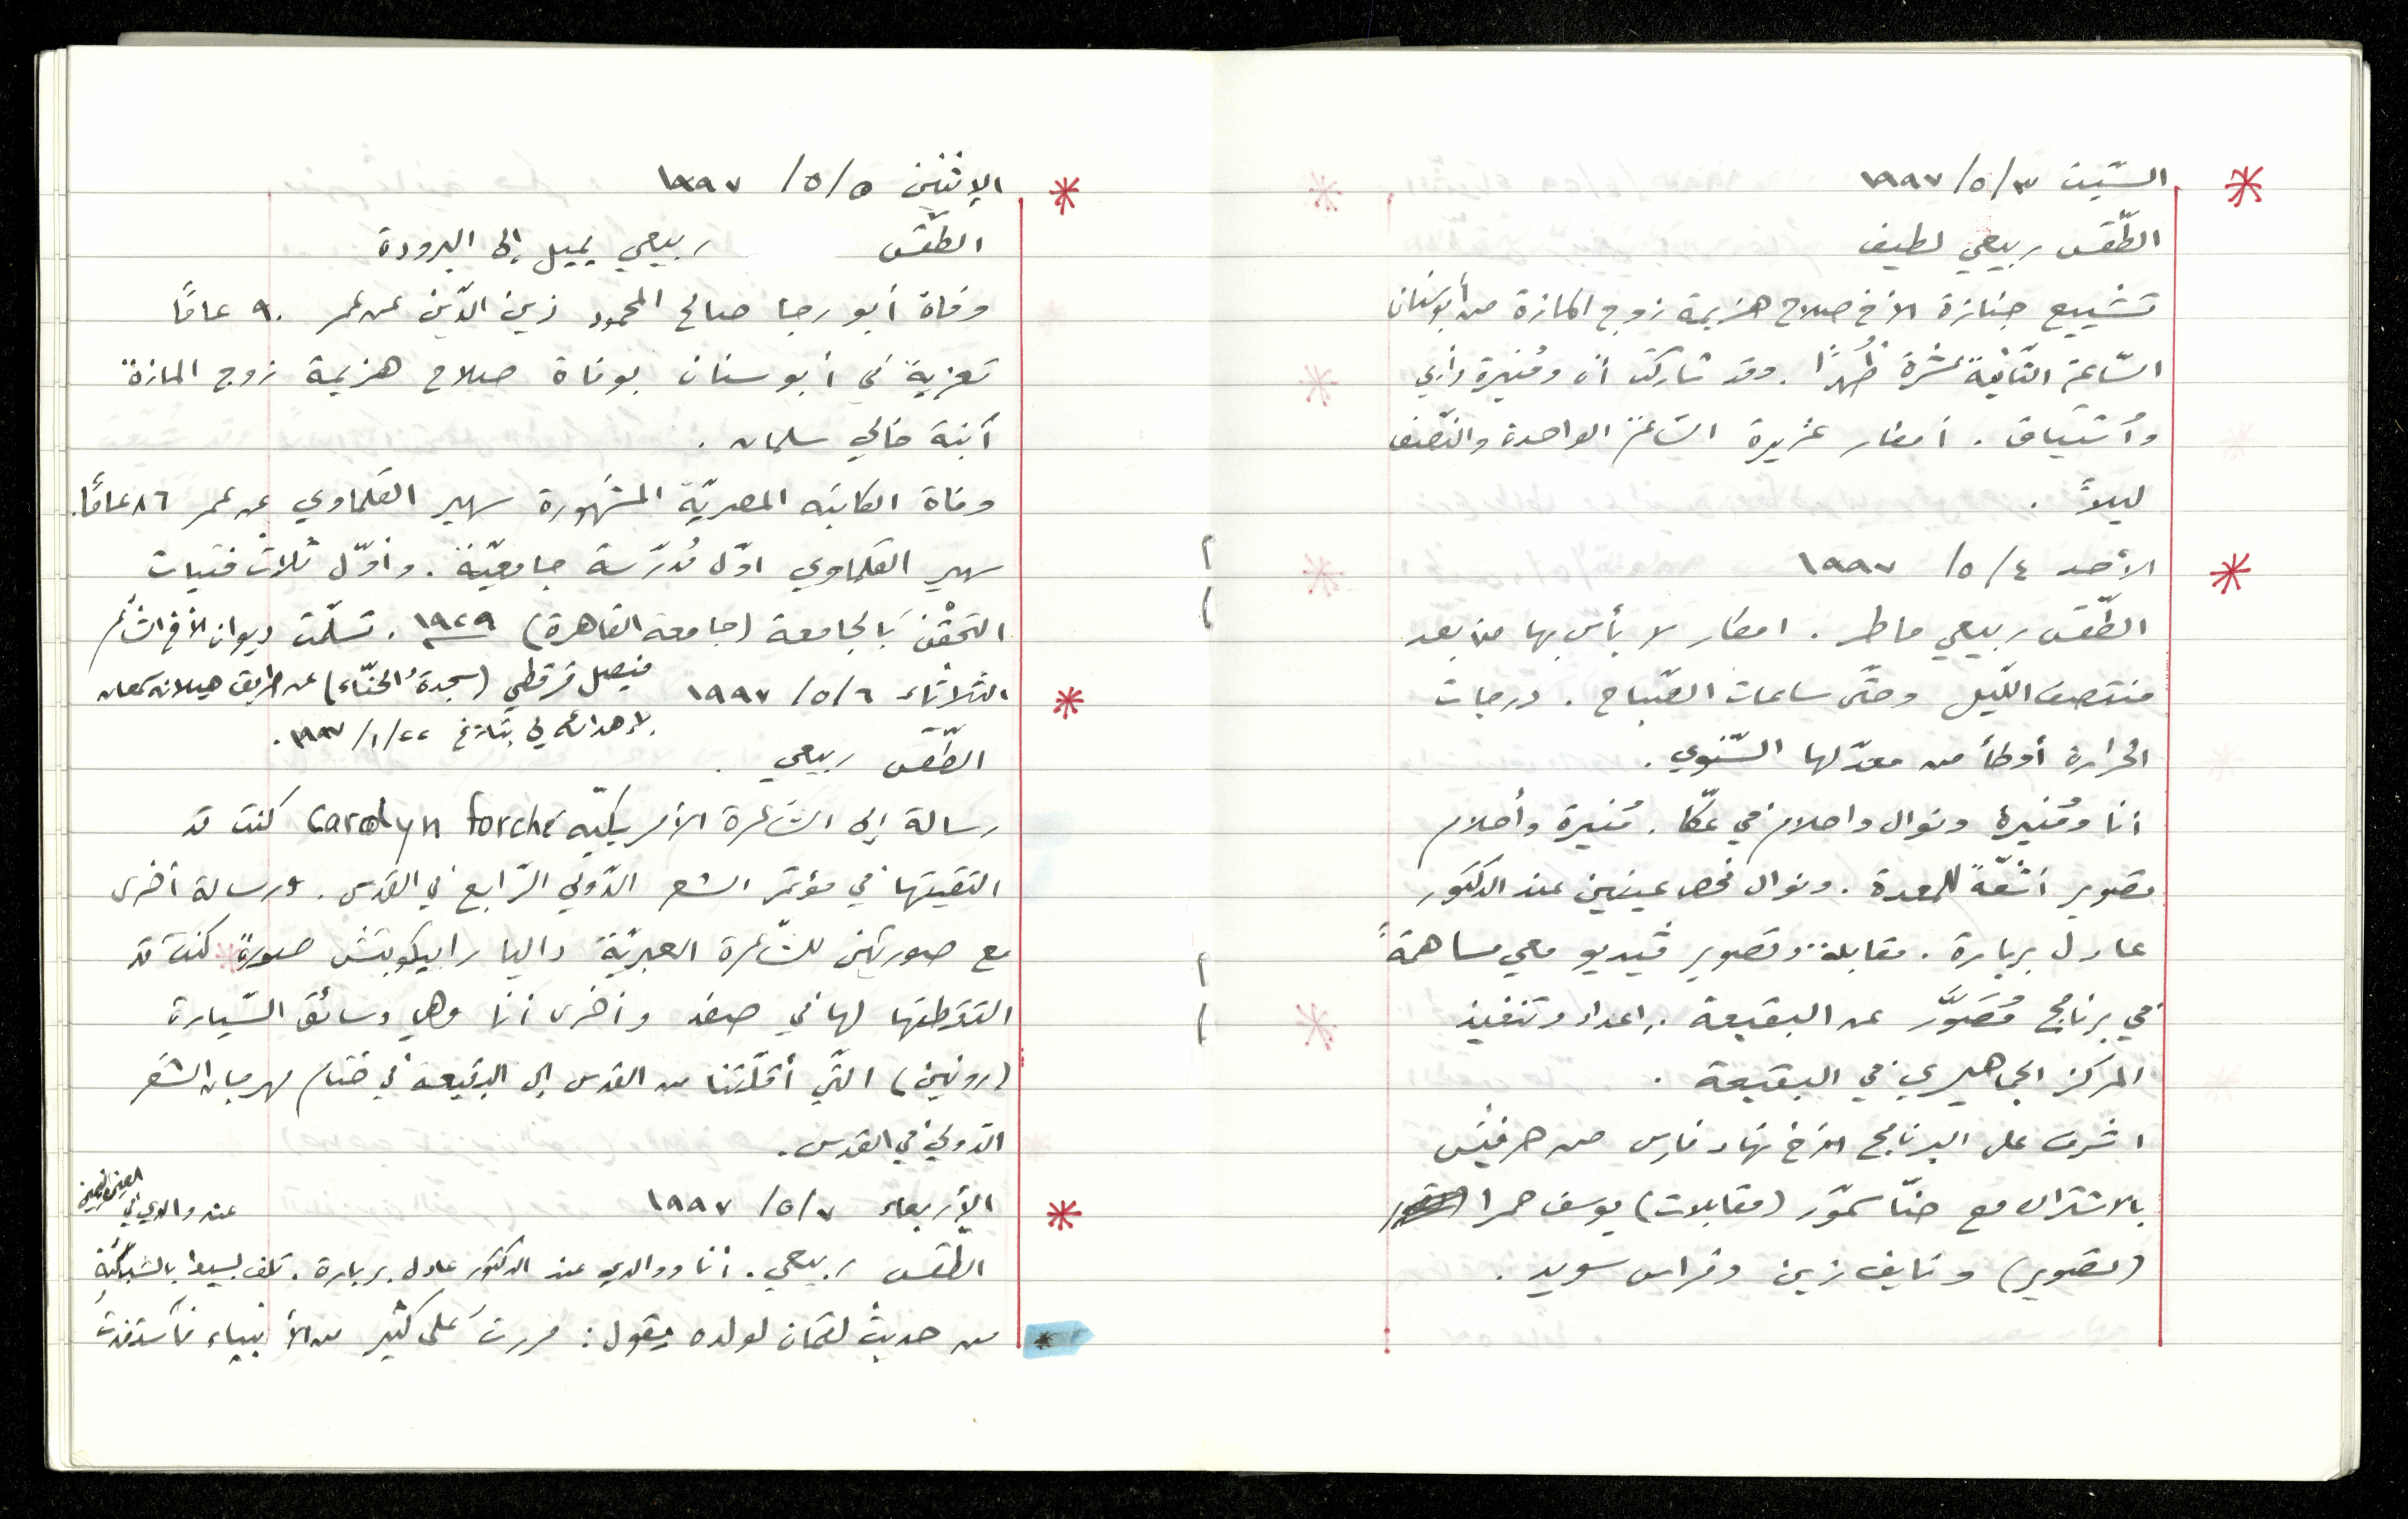 السّبت ٣/٥/١٩٩٧
الطّقس ربيعي لطيف
تشييع جنازة الأخ صلاح هزيمة زوج المازة من أبوسنان
السّاعة الثّانية عشرة ظُهرًا. وقد شاركت أنا ومُنيرة وأبي
وأشتياق. أمطار غزيرة السّاعة الواحدة والنّصف
ليلاً.
الأحد ٤/٥/١٩٩٧
الطّقس ربيعي ماطر. امطار لا بأس بها من بعد
منتصف اللّيل وحتّى ساعات الصّباح. درجات
الحرارة أوطأ من معدّلها السّنوي.
أنا ومُنيرة ونوال واحلام في عكّا. مُنيرة وأحلام
تصوير أشعّةً للمعدة. ونوال فحص عينين عند الدكتور
عادل بربارة. مقابلة وتصوير ڤيديو معي مساهمةً
في برنامج مُصَوَّر عن البقيعة. إعداد وتنفيذ
المركز الجماهيري في البقيعة.
اشرف على البرنامج الأخ نهاد فارس من حرفيش
بالاشتراك مع حنّا سمّور (مقابلات) يوسف حمرا
(تصوير) ونايف زين وفراس سويد.
الإثنين ٥/٥/١٩٩٧
الطّقس ربيعي يميل إلى البرودة
وفاة أبو رجا صالح المحمود زين الدّين عن عمر ٩٠ عامًا
تعزية في أبو سنان بوفاة صلاح هزيمة زوج المازة
أبنة خالي سلمان.
وفاة الكاتبه المصريّة المشهورة سهير القلماوي عن عمر ٨٦ عامًا.
سهير القلماوي اوّل مُدرّسة جامعيّة. وأوّل ثلاث فتيات
التحقْنَ بالجامعة (جامعة القاهرة) ١٩٢٩. تسلّمت ديوان الأخ الشّاعر
فيصل قرقطي (سجدة الحنّاء) عن طريق هيلانه سمعان
بإهدائه لي بتاريخ ٢٢/١/١٩٩٧.
الثّلاثاء ٦/٥/١٩٩٧
الطّقس ربيعي.
رسالة إلى الشّاعرة الأمريكيّه Carolyn Forché كنت قد
التقيتها في مؤتمر الشعر الدّولي الرّابع في القدس. ورسالة أخرى
مع صورتين للشّاعرة العبريّة داليا رابيكوبتش صورةً كنت قد
التقطتها لها في صفد وأخرى أنا وهي وسائق السّيارة
(رونين) التّي أقلّتنا من القدس إلى البقيعة في ختام مهرجان الشعر
الدّولي في القدس.
الأربعاء ٧/٥/١٩٩٧ عند والدي في العين اليمين
الطّقس ربيعي. أنا ووالدي عند الدكتور عادل بربارة. تلف بسيط بالشبكيّة
من حديث لقمان لولده يقول: مررت على كثير من الأنبياء فأستفدت